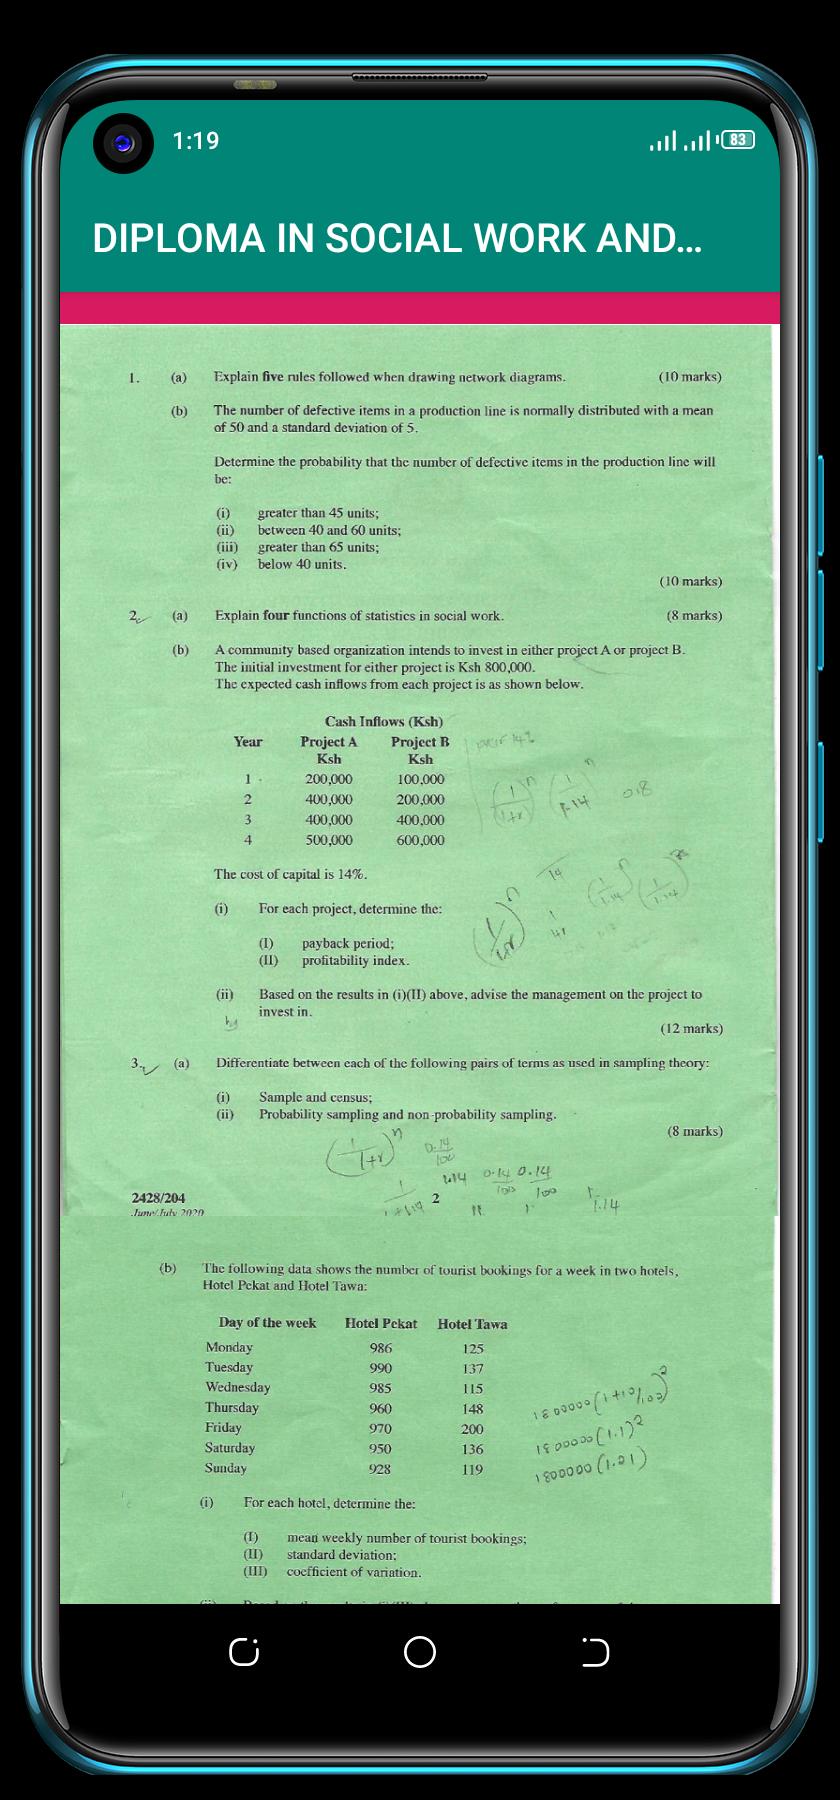 1:19
83
DIPLOMA IN SOCIAL WORK AND...
1. (a) Explain five rules followed when drawing network diagrams. (10 marks)
(b) The number of defective items in a production line is normally distributed with a mean
of 50 and a standard deviation of 5.
Determine the probability that the number of defective items in the production line will
be:
(i) greater than 45 units;
(ii) between 40 and 60 units;
(iii) greater than 65 units;
(iv) below 40 units.
(10 marks)
2. (a) Explain four functions of statistics in social work. (8 marks)
(b) A community based organization intends to invest in either project A or project B.
The initial investment for either project is Ksh 800,000.
The expected cash inflows from each project is as shown below.
Cash Inflows (Ksh)
Year Project A Project B
Ksh Ksh
1 200,000 100,000
2 400,000 200,000
3 400,000 400,000
4 500,000 600,000
The cost of capital is 14%.
(i) For each project, determine the:
(I) payback period;
(II) profitability index.
(ii) Based on the results in (i)(II) above, advise the management on the project to
invest in.
(12 marks)
3. (a) Differentiate between each of the following pairs of terms as used in sampling theory:
(i) Sample and census;
(ii) Probability sampling and non-probability sampling.
(8 marks)
(1/1+r)^n 0.14/100
1.14 0.14/100 0.14/100
2428/204 2 1.14
June/July 2020
(b) The following data shows the number of tourist bookings for a week in two hotels,
Hotel Pekat and Hotel Tawa:
Day of the week Hotel Pekat Hotel Tawa
Monday 986 125
Tuesday 990 137
Wednesday 985 115
Thursday 960 148
Friday 970 200
Saturday 950 136
Sunday 928 119
1800000(1+10/100)^2
1800000(1.1)^2
1800000(1.21)
(i) For each hotel, determine the:
(I) mean weekly number of tourist bookings;
(II) standard deviation;
(III) coefficient of variation.